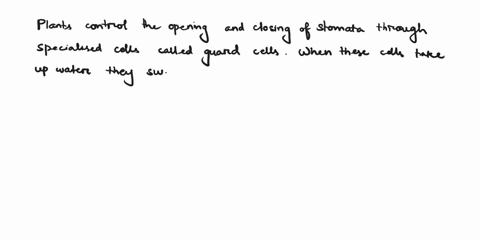 Plants control the opening and closing of stomata through
specialised cells called guard cells. When these cells take
up water they sw